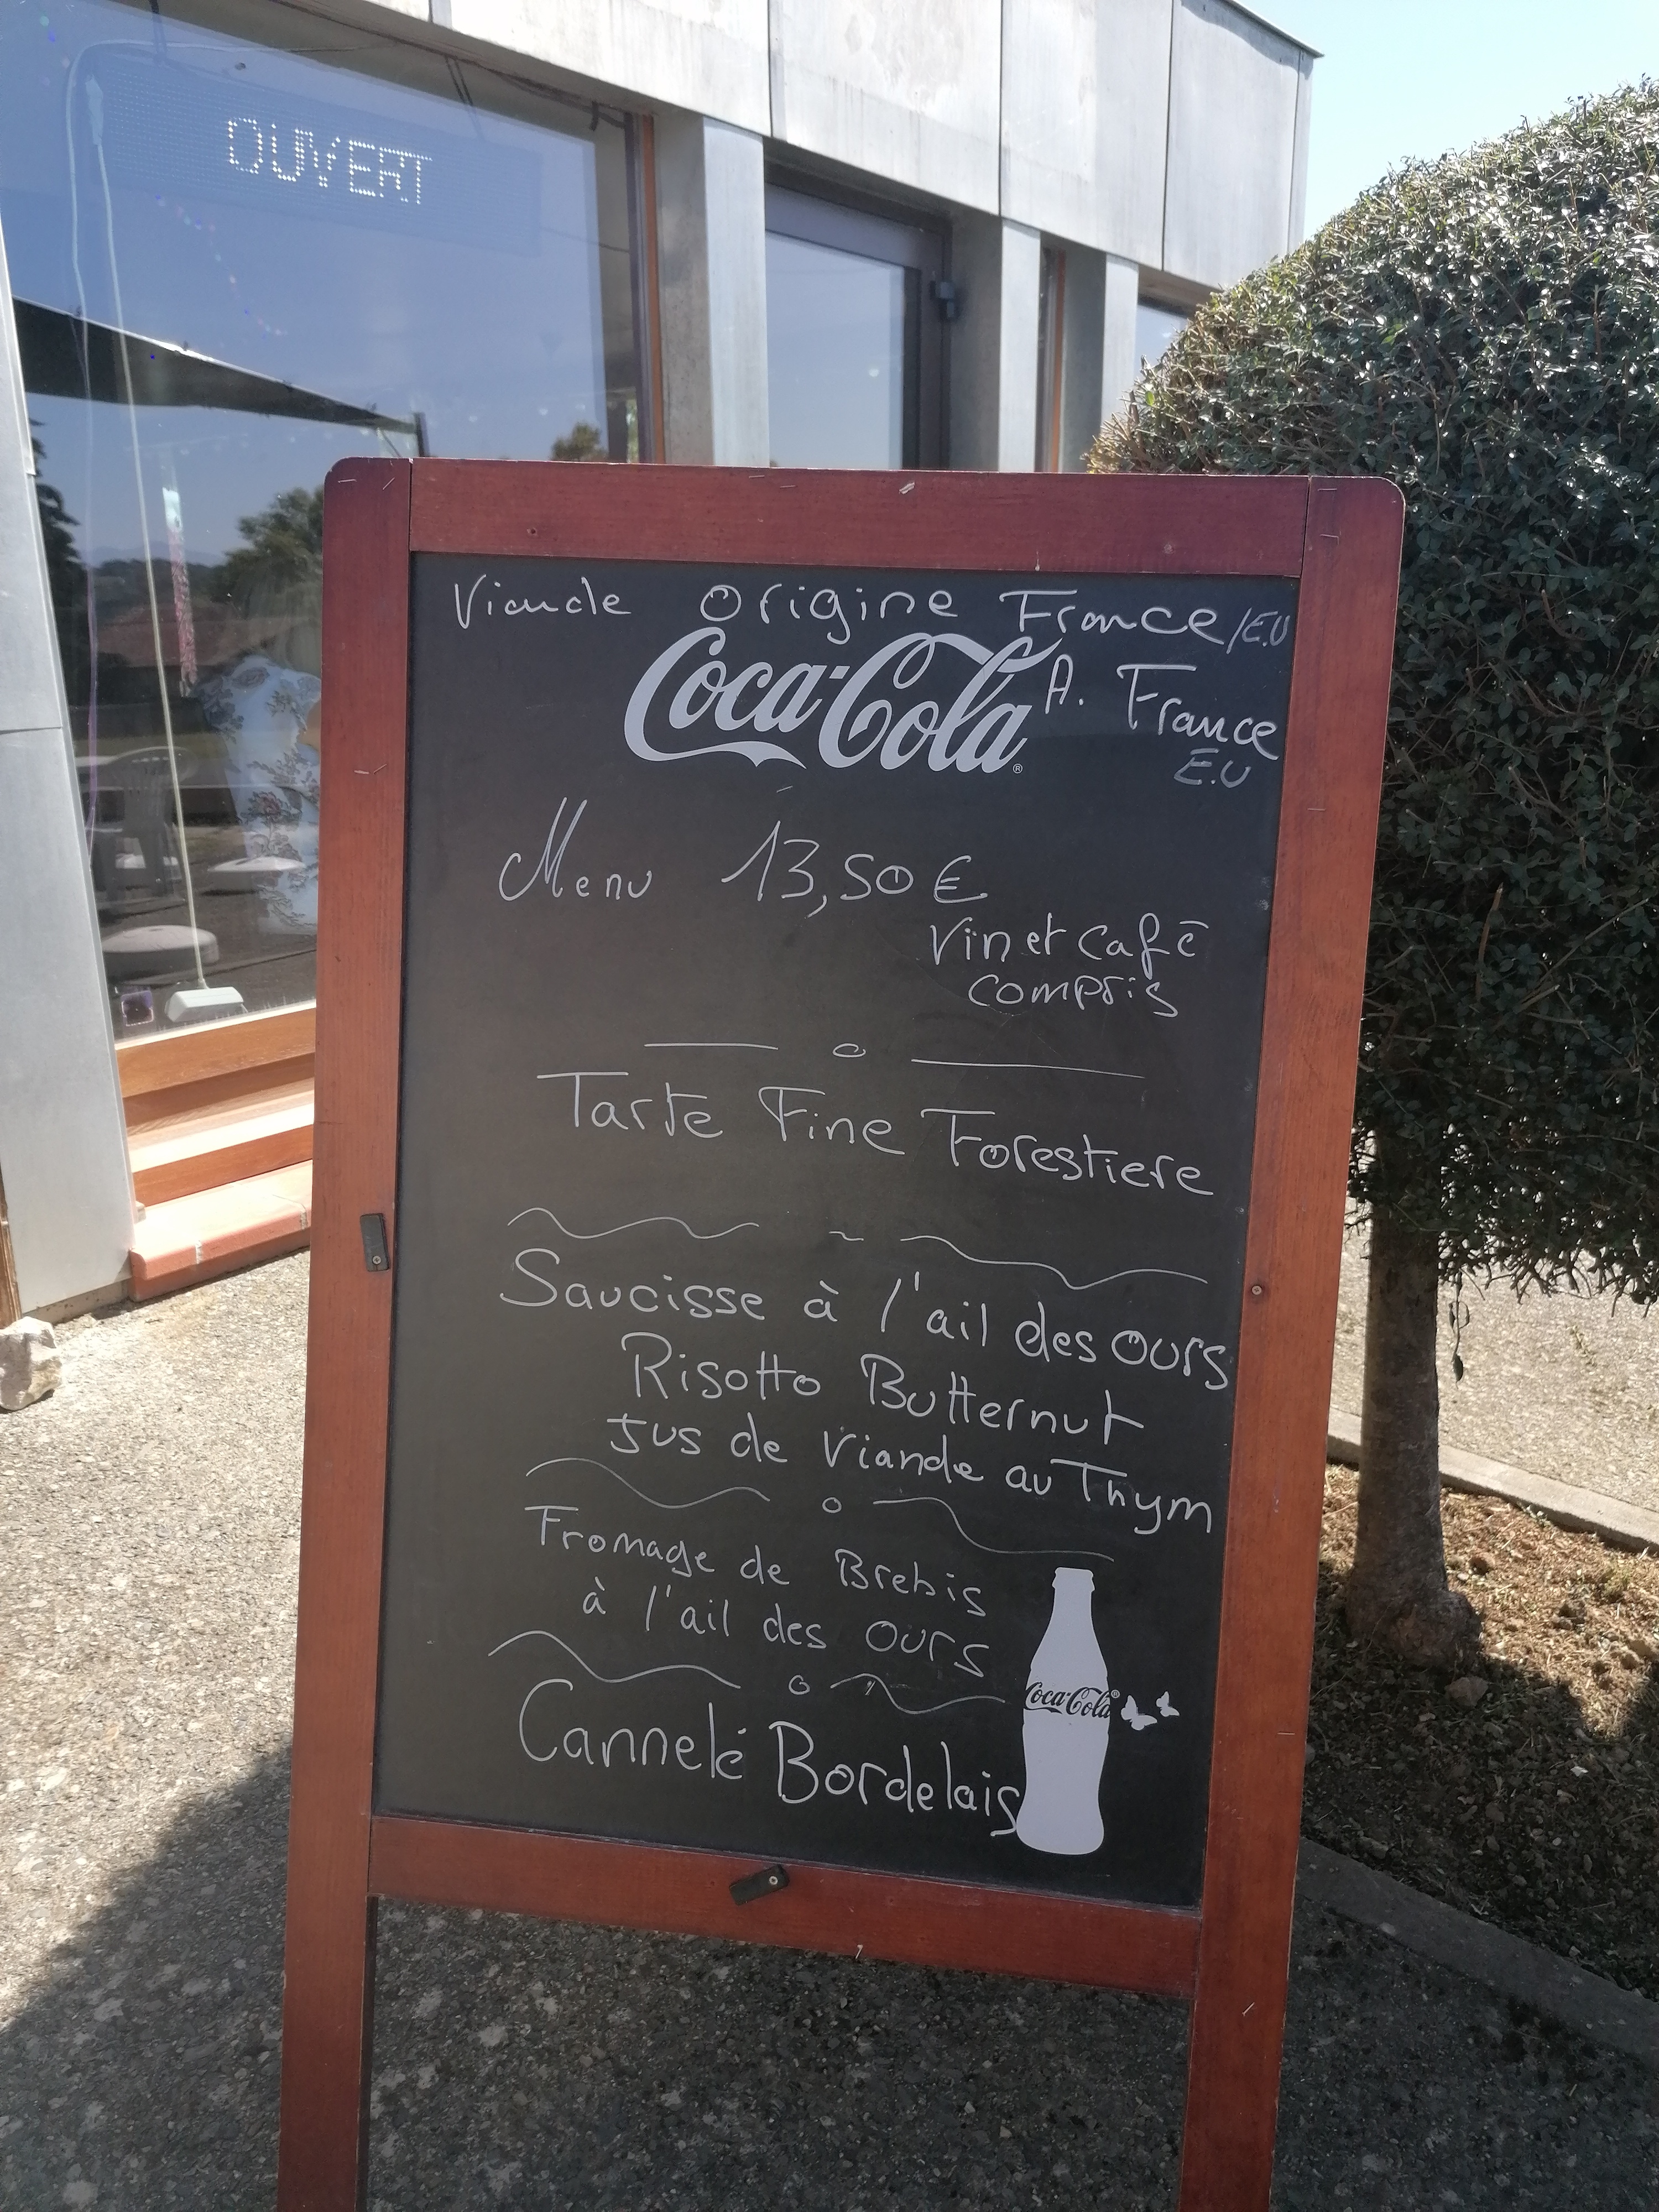 OUVERT
Viande origine France/E.U
Coca-Cola
A. France
E.U
Menu 13,50 €
Vin et café
compris
Tarte Fine Forestiere
Saucisse à l'ail des ours
Risotto Butternut
Jus de Viande au Thym
Fromage de Brebis
à l'ail des ours
Coca-Cola
Cannelé Bordelais